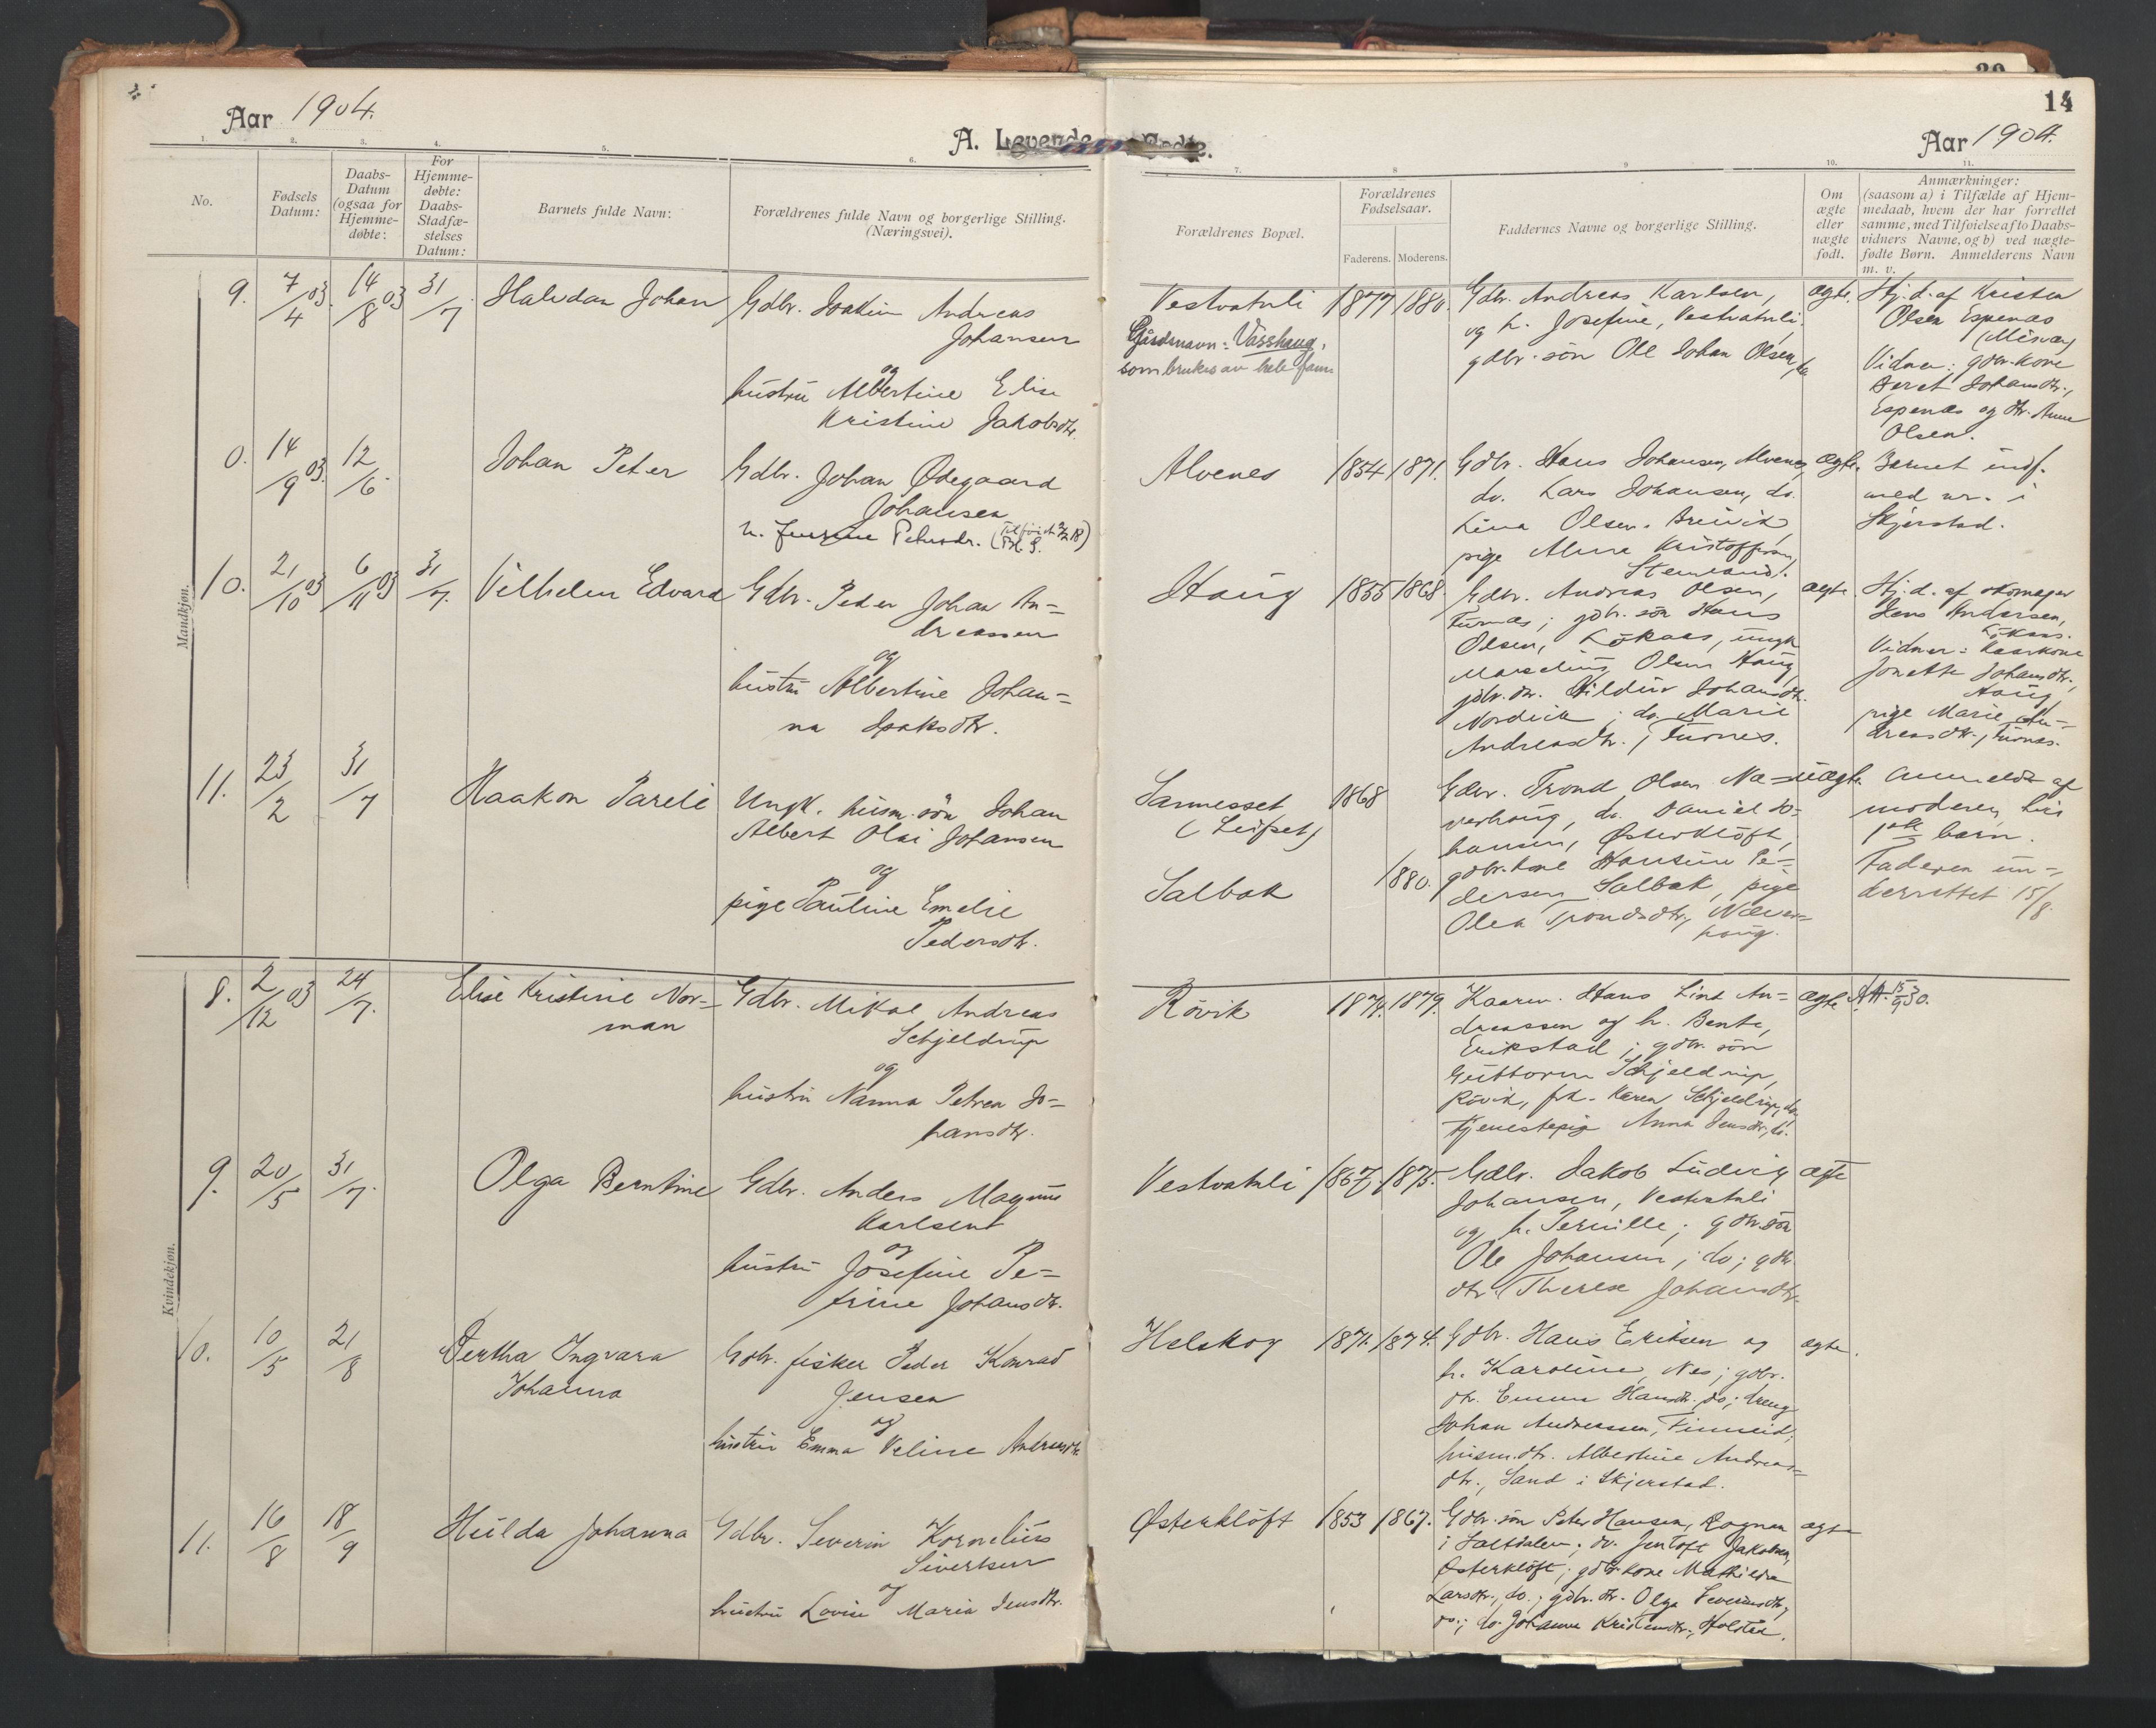 Aar 1904.
A. Levende Fødte.
14
Aar 1904.
1. 2. 3. 4. 5. 6. 7. 8 9 10. 11.
No.
Fødsels Datum:
Daabs-Datum (ogsaa for Hjemme-døbte:
For Hjemme-døbte: Daabs-Stadfæ-stelses Datum:
Barnets fulde Navn:
Forældrenes fulde Navn og borgerlige Stilling. (Næringsvei).
Forældrenes Bopæl.
Forældrenes Fødselsaar.
Faderens. Moderens.
Faddernes Navne og borgerlige Stilling.
Om ægte eller uægte født.
Anmærkninger:
(saasom a) i Tilfælde af Hjem-
medaab, hvem der har forrettet
samme, med Tilføielse af to Daabs-
vidners Navne, og b) ved uægte-
fødte Børn. Anmelderens Navn
m. v.
Mandkjøn.
9. 7/4 03. 14/8 03 31/7. Halvdan Johan
Gdbr. Joakim Andreas
Johansen
og
hustru Albertine Elise
Kristine Jakobsdtr.
Vestvatnli 1877 1880.
Gårdsnavn: Vasshaug,
som brukes av hele fam
Gdbr. Andreas Karlsen,
og h. Josefine, Vestvatnli.
gdbr. søn Ole Johan Olsen, do
ægte.
Hj. d. af Kristen
Olsen Espenæs
(Misvær)
Vidner: gdbr. kone
Beret Johansdtr.,
Espenæs og dtr. Anne
Olsen.
0. 14/9 03. 12/6. Johan Peter
Gdbr. Johan Ødegaard
Johansen
h. Jensine Petersdr.
Alvenes 1854 1871.
Gdbr. Hans Johansen, Alvenes,
do. Lars Johansen, do.
Lina Olsen. Breivik,
pige Alma Kristoffersen,
ægte.
Barnet indf.
med nr. i
Skjerstad.
10. 21/10 03 6/11 03 31/7. Vilhelm Edvard
Gdbr. Peder Johan An-
dreassen
og
hustru Albertine Johan-
na Isaksdtr.
Haug 1855 1868.
Gdbr. Andreas Olsen,
Turnes; gdbr. søn Hans
Olsen, Løkaas, ungk
Marselius Olsen Haug,
gdbr. dtr. Hildur Johansdtr.
Nordvik; do. Marie
Andreasdtr., Turnes.
ægte.
Hj. d. af skomager
Jens Andersen,
Løkaas.
Vidner: Kaarkone
Jonette Johansdtr.,
Haug
pige Marie An-
dreasdtr., Turnes.
11. 23/2 31/7 Haakon Pareli
Ungk. husm. søn Johan
Albert Olai Johansen
og
pige Pauline Emelie
Pedersdtr.
Sannesset 1868
(Leifset)
Salbak 1880.
Gdbr. Trond Olsen Næ-
verhaug, do. Daniel Jo-
hansen, Østerkløft,
gdbr. kone Hansine Pe-
dersen, Salbak, pige
Olea Trondsdtr., Næver-
haug.
uægte
Anmeldt af
moderen, hvis
1ste barn.
Faderen un-
derrettet 15/8.
Kvindekjøn.
8. 2/12 03 24/7. Elise Kristine Nor-
man
Gdbr. Mikal Andreas
Schjeldrup
og
hustru Nanna Petrea Jo-
hansdtr.
Røvik 1874. 1879.
Kaarm. Hans Lint An-
dreassen og h. Bente,
Erikstad; gdbr. søn
Guttorm Schjeldrup,
Røvik, frk. Karen Schjeldrup, do.
tjenestepige Anna Jensdtr., do.
ægte
Att. 15/9 30.
9. 20/5 31/7. Olga Berntine
Gdbr. Anders Magnus
Karlsen
og
hustru Josefine Pe-
trine Johansdtr.
Vestvatnli 1867. 1875.
Gdbr. Jakob Ludvig
Johansen, Vestvatnli
og h. Pernille; gdbr. søn
Ole Johansen; do; gdbr.
dtr. Therese Johansdtr.
ægte
10. 10/5 21/8 Bertha Ingvara
Johanna
Gdbr. fisker Peder Konrad
Jensen
og
hustru Emma Veline Andersdtr.
Helskog 1871. 1874.
Gdbr. Hans Eriksen og
h. Karoline, Nes; gdbr.
dtr. Emma Hansdtr. do; dreng
Johan Andreassen, Finneid;
husm. dtr. Albertine Andreas-
dtr., Sand i Skjerstad.
ægte.
11. 16/8 18/9 Hulda Johanna
Gdbr. Severin Kornelius
Sivertsen
og
hustru Lovise Maria Jensdtr.
Østerkløft 1853 1867.
Gdbr. søn Peter Hansen, Rognan
i Saltdalen; do. Jentoft Jakobsen,
Østerkløft; gdbr. kone Mathilde
Larsdtr., do.; gdbr. dtr. Olga Severinsdtr.,
do.; do. Johanne Kristensdtr., Holstad.
ægte